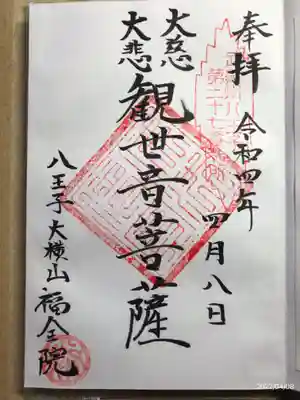 奉拝 令和四年
四月八日
第二十七
大慈
大悲
観世音菩薩
八王子大横山福全院
2022/04/08